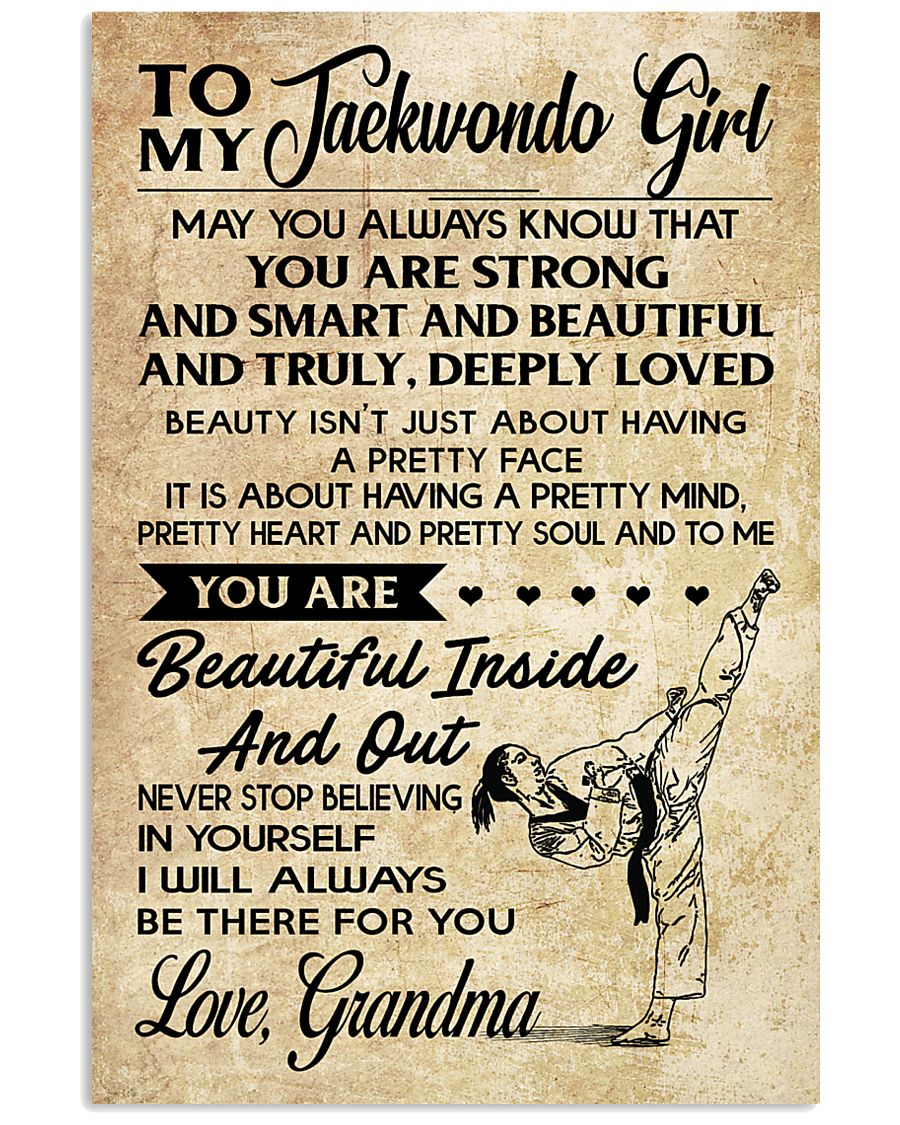 TO MY Taekwondo Girl
MAY YOU ALWAYS KNOW THAT
YOU ARE STRONG
AND SMART AND BEAUTIFUL
AND TRULY, DEEPLY LOVED
BEAUTY ISN'T JUST ABOUT HAVING
A PRETTY FACE
IT IS ABOUT HAVING A PRETTY MIND,
PRETTY HEART AND PRETTY SOUL AND TO ME
YOU ARE
Beautiful Inside
And Out
NEVER STOP BELIEVING
IN YOURSELF
I WILL ALWAYS
BE THERE FOR YOU
Love, Grandma